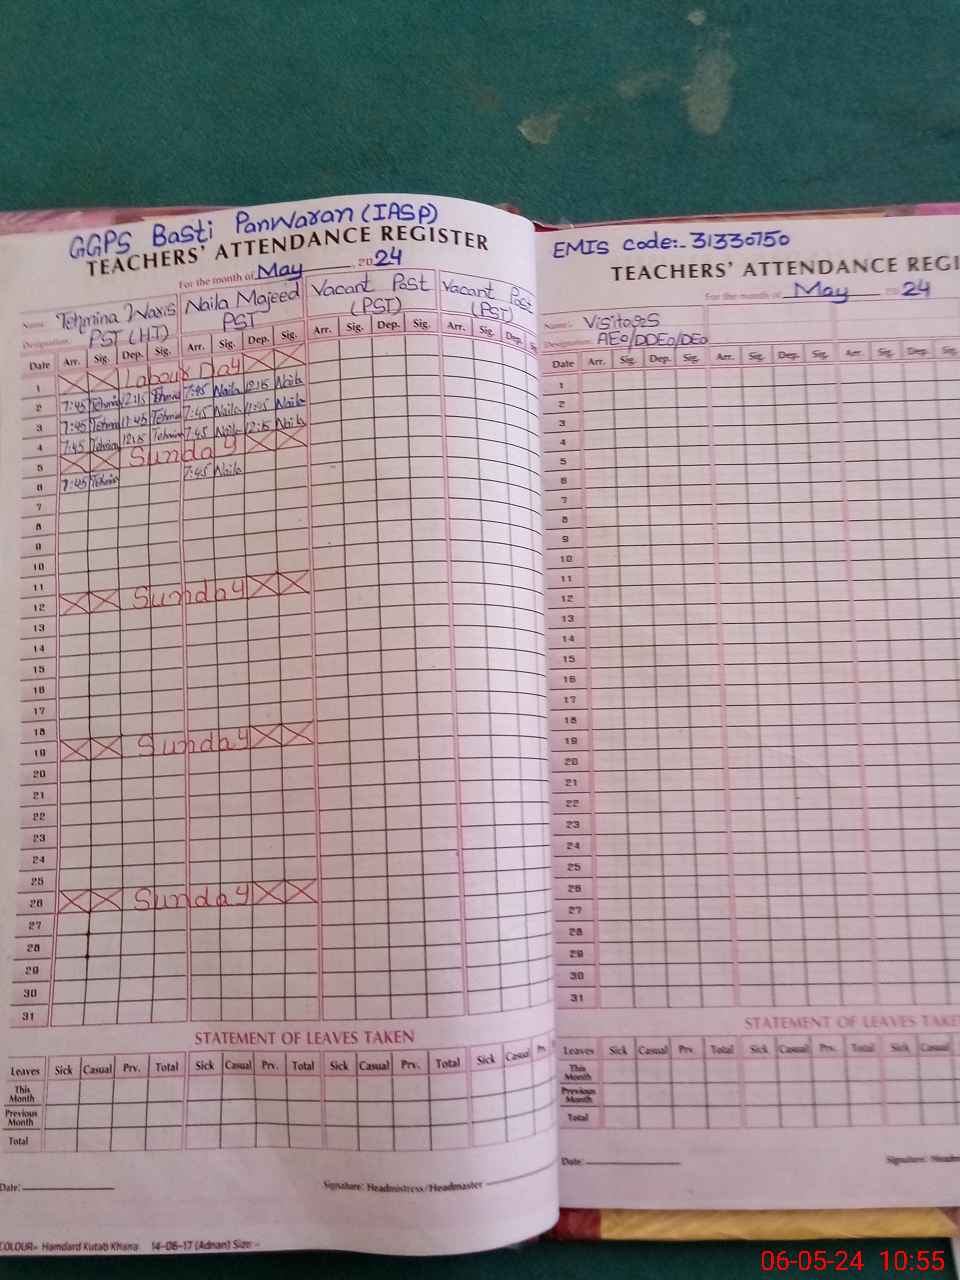 GGPS Basti Panwaran (IASP)
TEACHERS' ATTENDANCE REGISTER
For the month of May, 2024
Name: Tehmina Waris Naila Majeed Vacant Post Vacant Post
Designation: PST (HT) PST (PST) (PST)
Date Arr. Sig. Dep. Sig. Arr. Sig. Dep. Sig. Arr. Sig. Dep. Sig. Arr. Sig. Dep.
1 Labour Day
2 7:45 Tehmina 12:15 7:45 Naila 12:15 Naila
3 7:45 11:45 7:45 Naila 11:45 Naila
4 7:45 Tehmina 12:15 Tehmina 7:45 Naila 12:15 Naila
5 Sunday
6 7:45 Tehmin 7:45 Naila
7
8
9
10
11
12 Sunday
13
14
15
16
17
18
19 Sunday
20
21
22
23
24
25
26 Sunday
27
28
29
30
31
STATEMENT OF LEAVES TAKEN
Leaves Sick Casual Prv. Total Sick Casual Prv. Total Sick Casual Prv. Total Sick Casual Prv.
This Month
Previous Month
Total
Date: Signature: Headmistress/Headmaster
COLOUR= Hamdard Kutab Khana 14-06-17 (Adnan) Size:-
EMIS Code:- 31330750
TEACHERS' ATTENDANCE REGI
For the month of May 2024
Name:- Visitors
Designation: AEO/DDEO/DEO
Date Arr. Sig. Dep. Sig. Arr. Sig. Dep. Sig. Arr. Sig. Dep. Sig.
1
2
3
4
5
6
7
8
9
10
11
12
13
14
15
16
17
18
19
20
21
22
23
24
25
26
27
28
29
30
31
STATEMENT OF LEAVES TAKE
Leaves Sick Casual Prv. Total Sick Casual Prv. Total Sick Casual
This Month
Previous Month
Total
Date: Signature: Headm
06-05-24 10:55